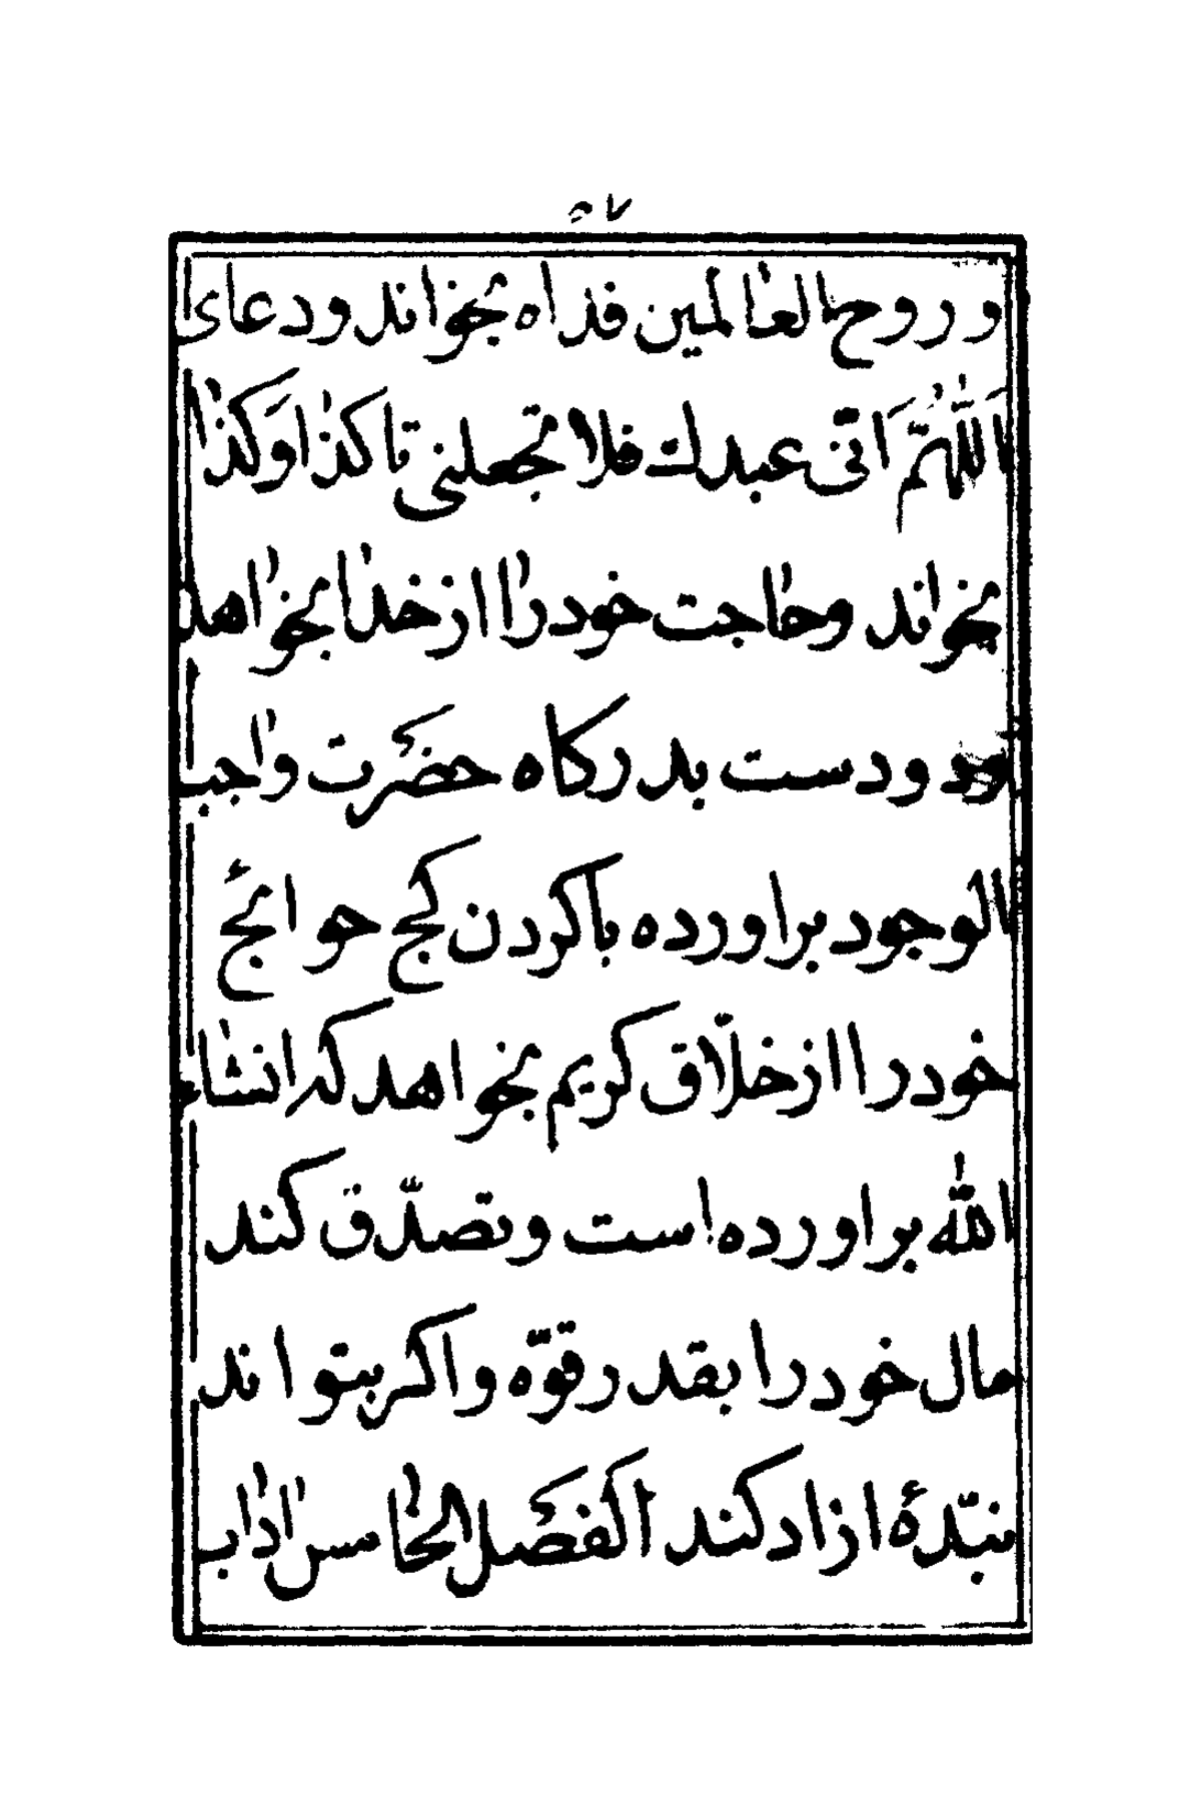 ٥٧
و روح العالمین فداه بخواند و دعای
اَللّٰهُمَّ اَنّی عبدك فلا تجعلنی تا كذا وَ كذا
بخواند و حاجت خود را از خدا بخواهد
و دست بدرکاه حضرت واجب
الوجود براورده باکردن کج حوائج
خود را از خلّاق کریم بخواهد که انشاء
الله براورده است و تصدّق کند
مال خود را بقدر قوّه و اکر بتواند
بندّهٔ ازاد کند الفصل الخامس اداب